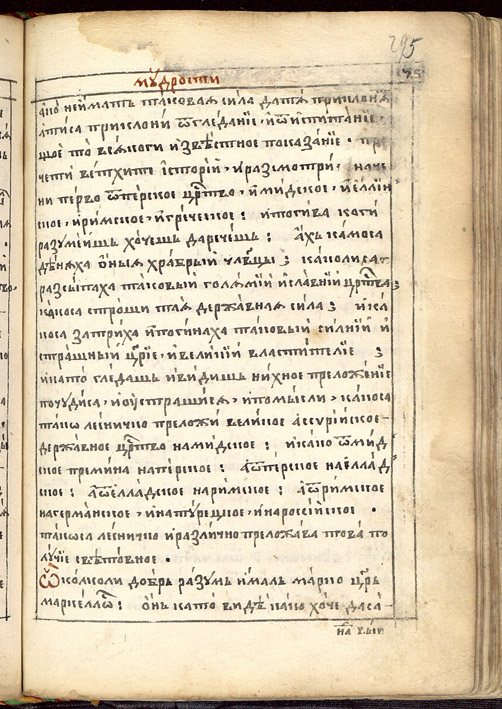 295
мꙋ́дрости
175
ако неймать таковаѧ сила да тѧ приклонѧ
а ти сѧ приклони ѿ гледанїе, и ѿ испитанїе,
щое то веѧкоги извѣстное показанїе. пре
чети ветхите исторїй, и разсмотри, наче
ни перво ѿ перское цр҃тво, и мидское, и еллин
ское, и римское, и греческое: и тогива каги
разумеишь хочешь да речешь: ахъ камо са
дѣнѧха оныѧ храбрый чл҃вцы; како ли са
разсыпаха таковый големїй и славнїй цр҃тва;
како са строши таѧ державнаѧ сила; и ка
ко са затриха и погинаха таковый силнїй и
страшный цр҃їе, и великїй властителїе ;
и като гледашь и видишь нихное преложенїе
почуди са, и оустраши сѧ, и помысли, како са
тако леснично преложи великое ассурїйское
державное цр҃тво на мидское: и како ѿ мид
ское премина на перское: а ѿ перское на еллад
ское: а ѿ елладское на римское: а ѿ римское
на германское, и на турецкое, и на россійское.
тако са леснично и различно преложава това по
лучїе свѣтовное.
Ѿ колколи добръ разумъ ималъ марко цр҃ь
маркеллѡ: онъ като видѣ како хоче да са